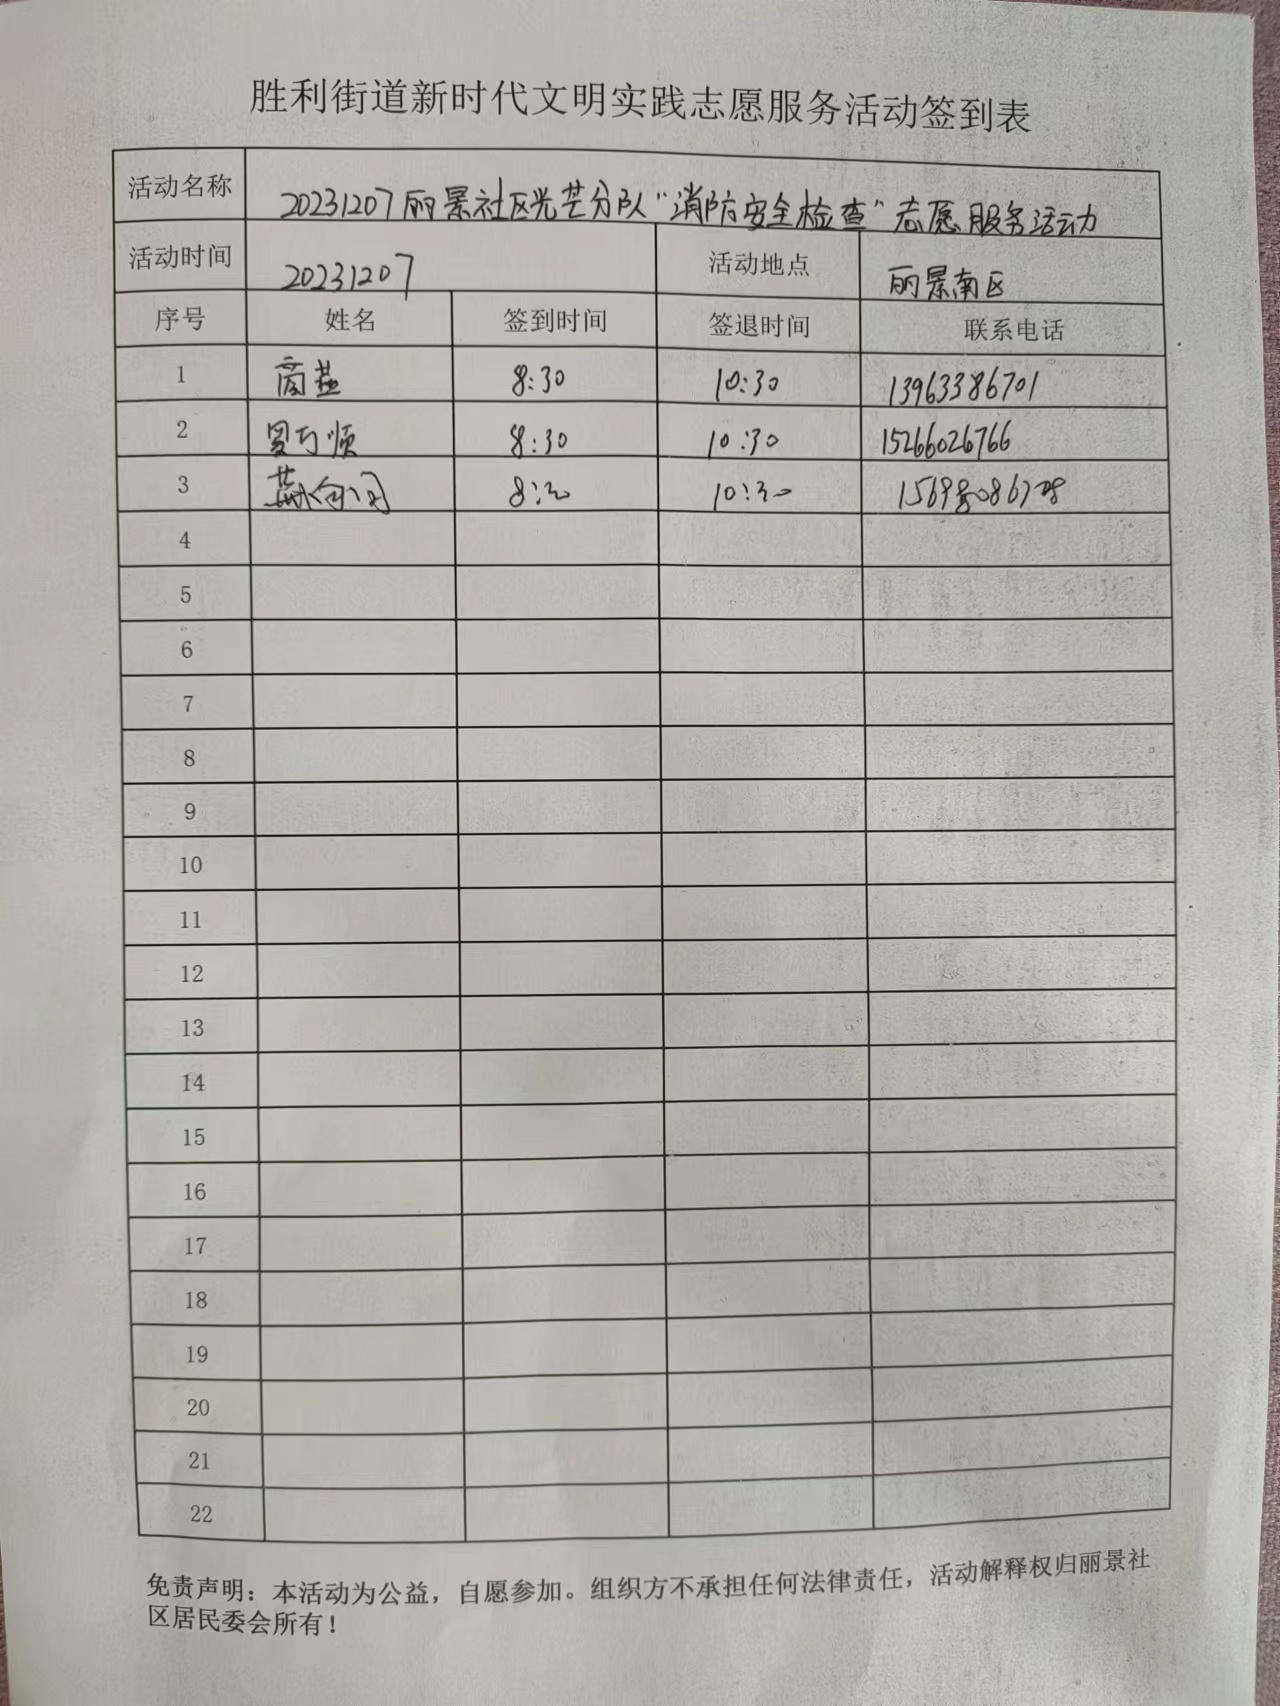 胜利街道新时代文明实践志愿服务活动签到表
活动名称 20231207丽景社区光芒分队“消防安全检查”志愿服务活动
活动时间 20231207 活动地点 丽景南区
序号 姓名 签到时间 签退时间 联系电话
1 商燕 8:30 10:30 13963386701
2 8:30 10:30 15266026766
3 8:30 10:30
4
5
6
7
8
9
10
11
12
13
14
15
16
17
18
19
20
21
22
免责声明：本活动为公益，自愿参加。组织方不承担任何法律责任，活动解释权归丽景社
区居民委会所有！